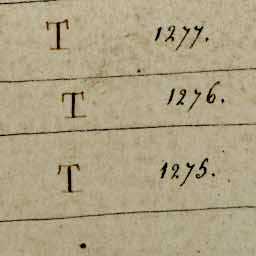 T 1277.
T 1276.
T 1275.